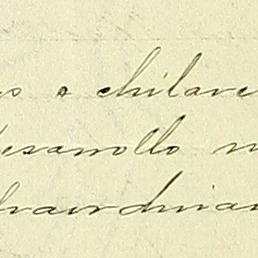 o chilare
esarrollo
traordina